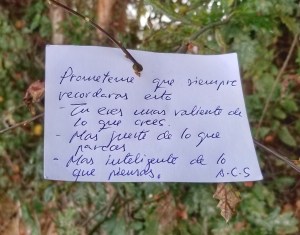 Prometeme que siempre
recordaras esto
- Tu eres mas valiente de
lo que crees.
- Mas fuerte de lo que
pareces
- Mas inteligente de lo
que piensas.
A-C-S